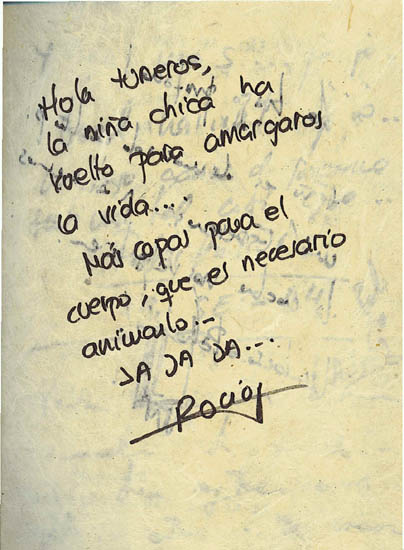 Hola tuneros,
la niña chica ha
vuelto para amargaros
la vida....
Más copas para el
cuerpo, que es necesario
animarlo.-
JA JA JA...
Rocío